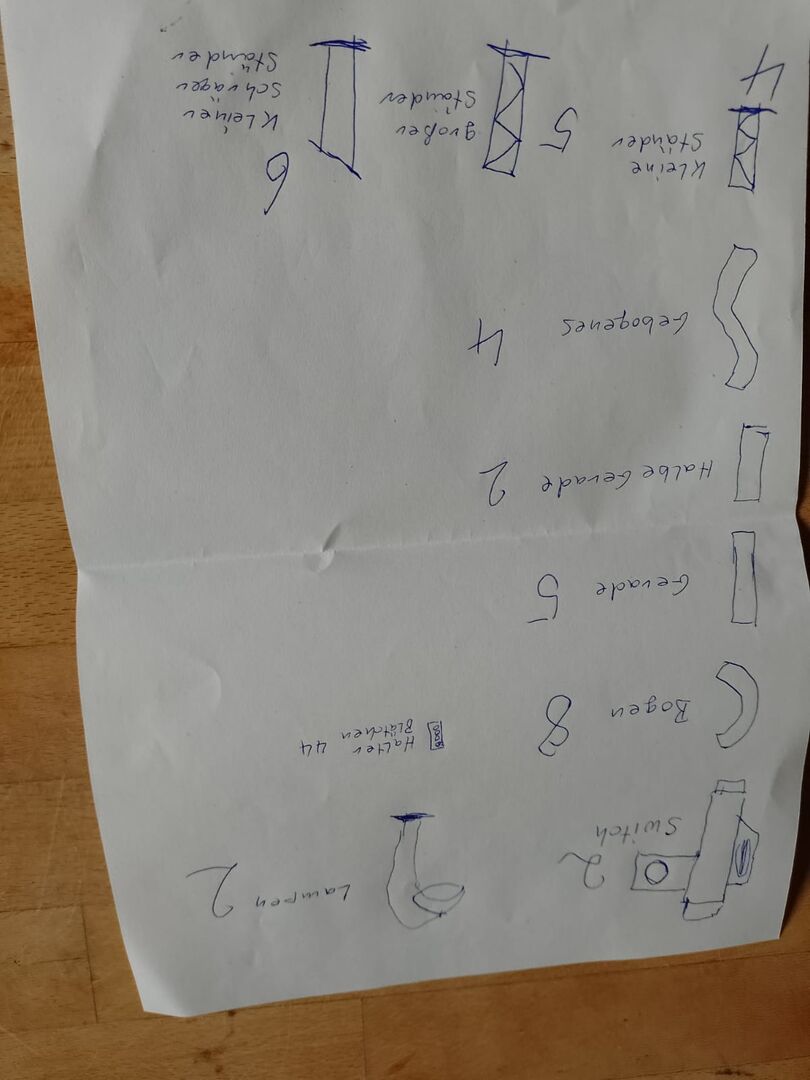 2
Switch
Lampen 2
Bogen 8
Halter 44
Blättchen
Gerade 5
Halbe Gerade 2
Gebogenes 4
Kleine
Ständer
4
großer
Ständer
5
6
Kleiner
schräger
Ständer